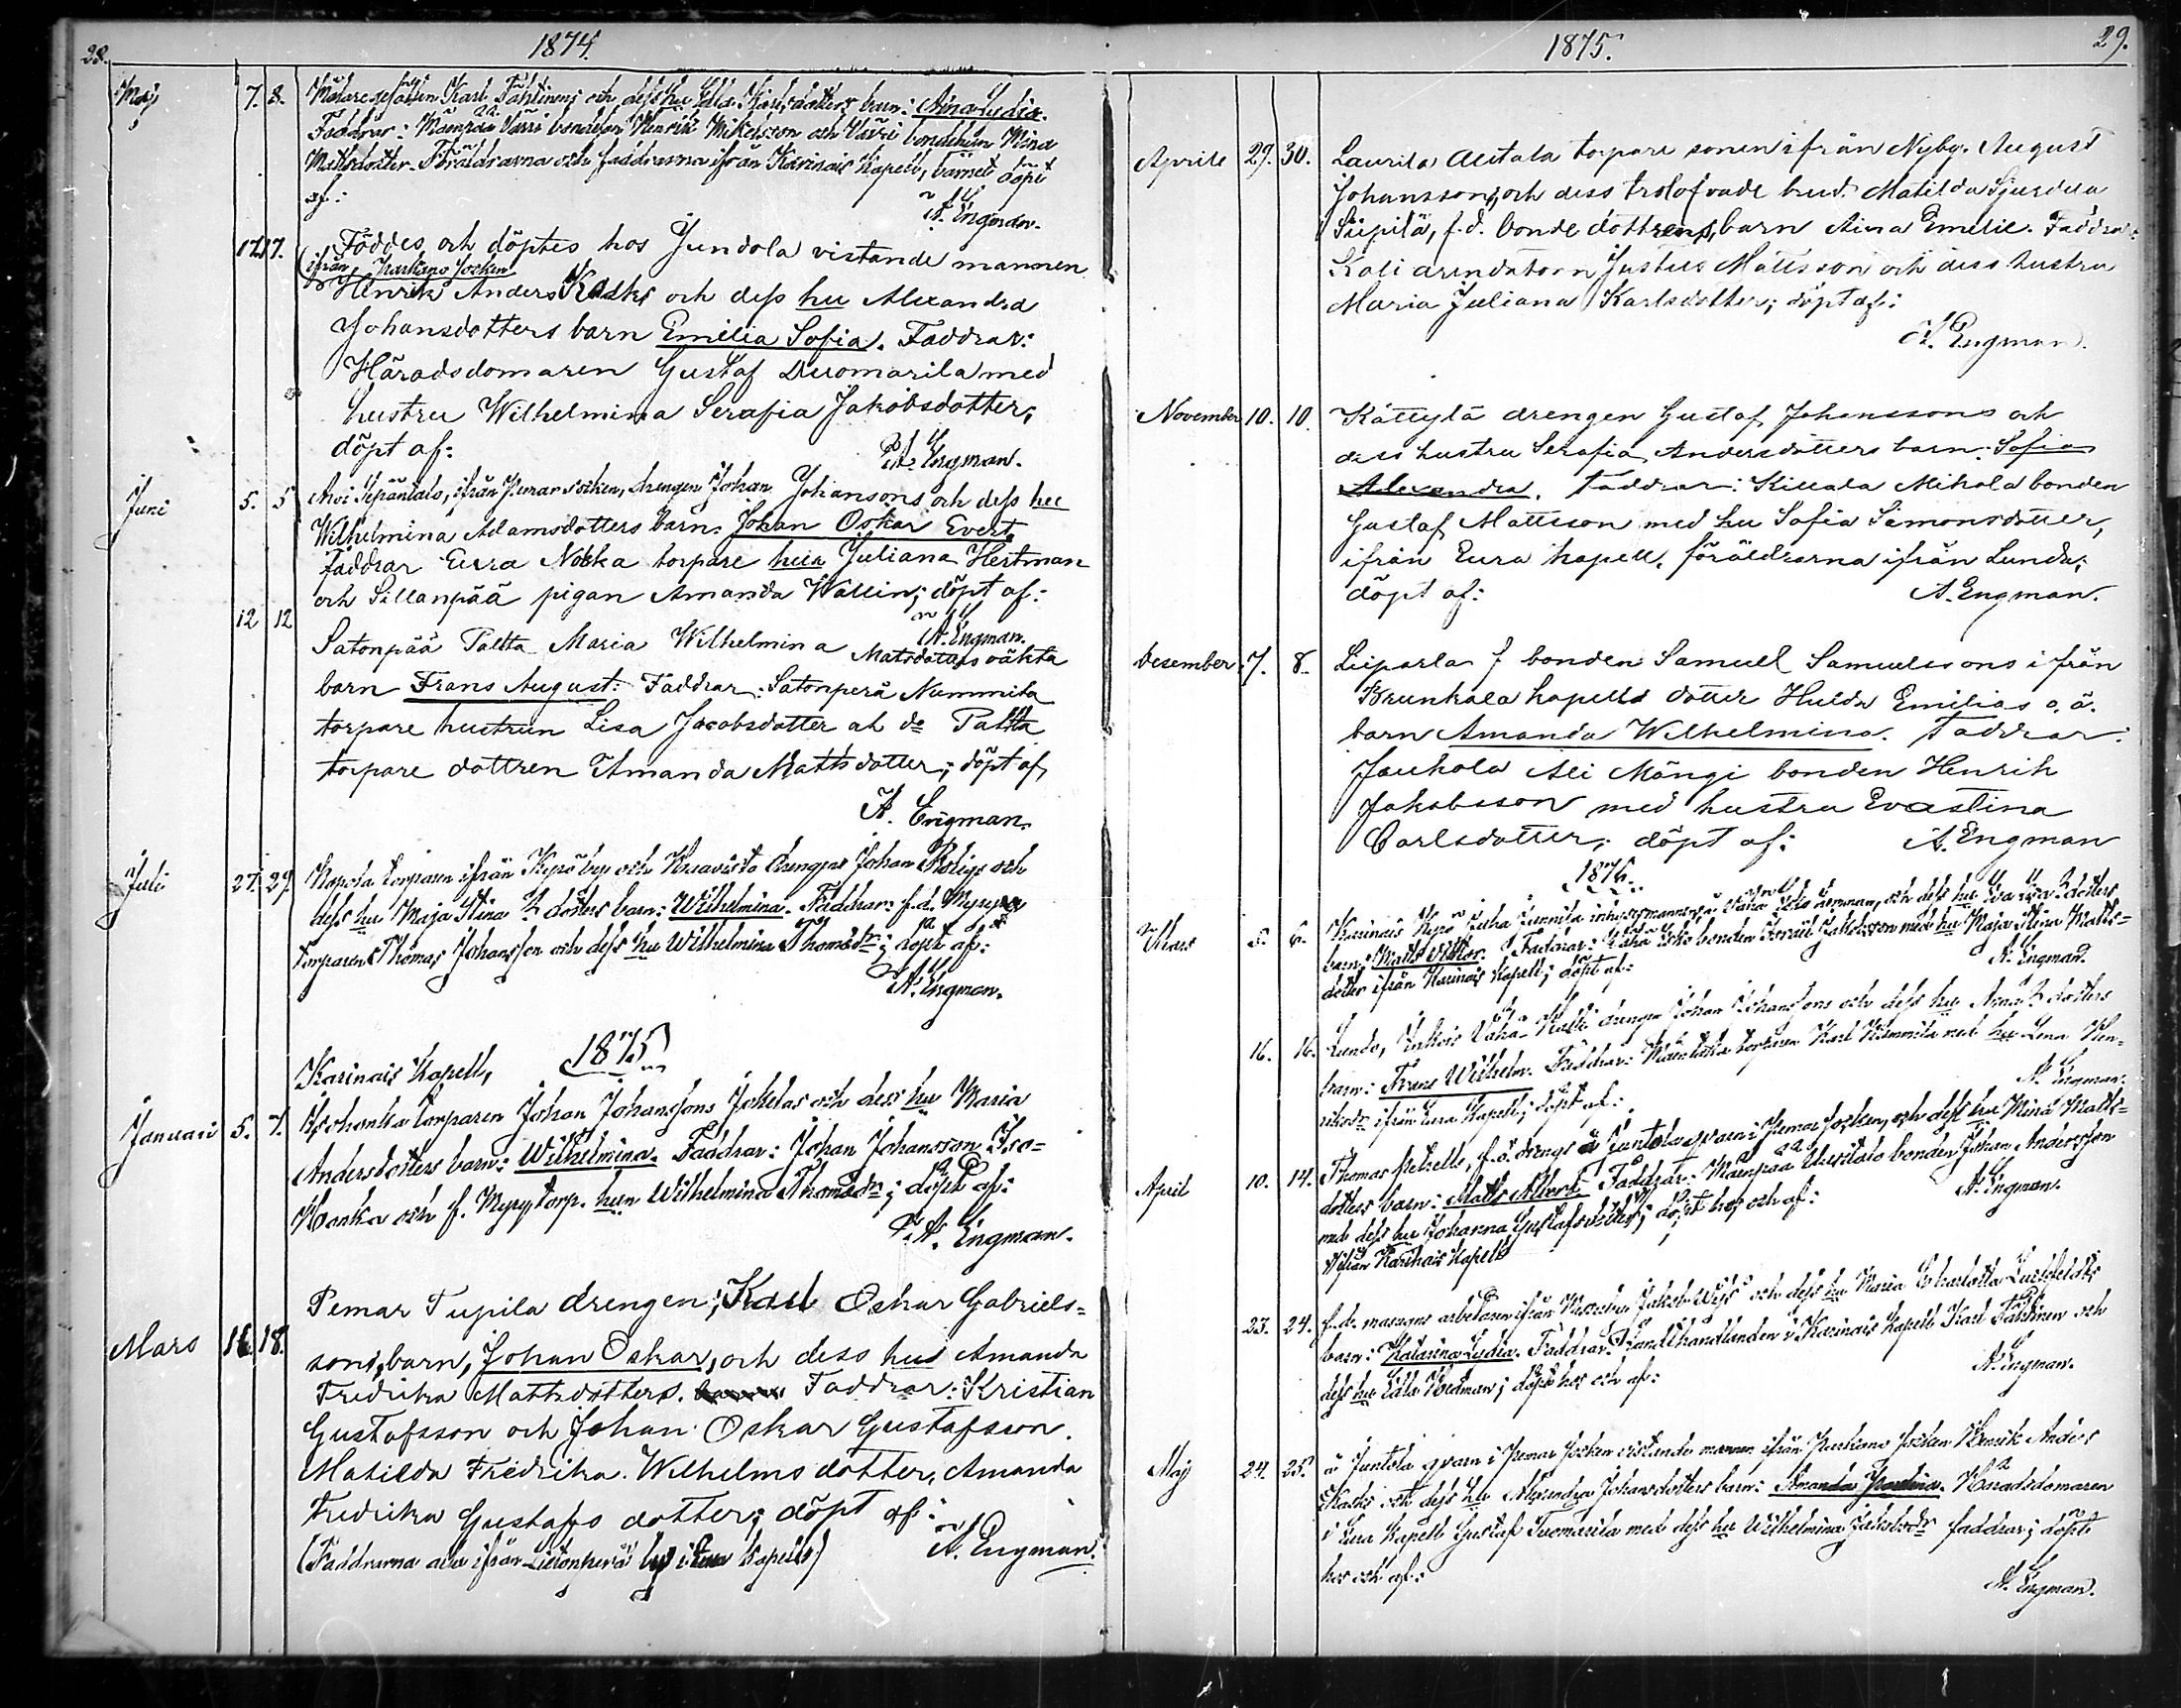 28.
1874.
Maj 7. 8. Målaregesällen Karl Tähtinens och dess hu Edla Karlsdotters barn: Aina Lydia.
Faddrar: Mäenpää Värri bondeson Henrik Mikelsson och Värri bondehun Mina
Mattsdotter. Föräldrarna och faddrarna ifrån Karinais Kapell, barnet döpt
af:
A. Engman.
17. 17. Föddes och döptes hos Juntola vistande mannen
(ifrån Karkano Socken
Henrik Anders Kasks och dess hu Alexandra
Johansdotters barn Emilia Sofia. Faddrar:
Häradsdomaren Gustaf Tuomarila med
hustru Wilhelmina Serafia Jakobsdotter;
döpt af:
A. Engman.
Juni 5. 5 Seppäntalo, ifrån Pemar socken, drengen Johan Johansons och dess hu
Wilhelmina Adamsdotters barn: Johan Oskar Evert.
Faddrar Eura Nokka torpare hun Juliana Hestman
och Sillanpää pigan Amanda Wallin; döpt af:
A. Engman.
12 12 Satonpää Paltta Maria Wilhelmina Matsdotters oäkta
barn Frans August: Faddrar: Satonperä Nummita
torpare hustrun Lisa Jacobsdotter ah do Paltta
torpare dottren Amanda Mattsdotter; döpt af,
A. Engman.
Juli 27. 29. Kapola torparen ifrån Kyrö by och Kuavisto drengens Johan Roligs och
dess hu Maja Stina dotters barn: Wilhelmina. Faddrar: f.d. Myry
torparen Thomas Johansson och dess hu Wilhelmina Thomasdr; döpt af:
A. Engman.
Karinais Kapell, 1875
Januari 5. 7. Isohonka torparen Johan Johanssons Jokelas och dess hu Maria
Andersdotters barn: Wilhelmina. Faddrar: Johan Johansson Iso-
Honka och f. Myry torp. hun Wilhelmina Thomasdr; döpt af:
A. Engman.
Mars 16. 18. Pemar Tupila drengen; Karl Oskar Gabriels-
sons, barn, Johan Oskar, och dess hus Amanda
Fredrika Mattsdotters. Faddrar: Kristian
Gustafsson och Johan Oskar Gustafsson.
Matilda Fredrika Wilhelms dotter, Amanda
Fredrika Gustafs dotter; döpt af:
(Faddrarna alla ifrån Lietonperä by i Eura Kapell)
A. Engman.
1875.
29.
Aprile 29. 30. Laurila Alitala torpare sonen ifrån Nyby. August
Johanssons, och dess trolofvade brud: Matilda
Siipilä, f.d. bonde dottrens, barn Aina Emelie. Faddrar:
Kali arendatorn Justus Mattsson och dess hustru
Maria Juliana Karlsdotter; döpt af:
A. Engman.
November 10. 10. Kättylä drengen Gustaf Johanssons och
dess hustru Serafia Andersdotters barn: Sofia
Alexandra. Faddrar: Killala Mikola bonden
Gustaf Mattsson med hu Sofia Simonsdotter,
ifrån Eura kapell. föräldrarna ifrån Lundo;
döpt af:
A. Engman.
Desember 7. 8. Liiparla f bonden Samuel Samuelssons ifrån
Krunkala kapells dotter Hulda Emilias o.ä.
barn Amanda Wilhelmina. Faddrar:
Jaukola Ali Mängi bonden Henrik
Jakobsson med hustru Evastina
Carlsdotter; döpt af:
A. Engman
1876.
Mars 5. 6. Karinais Kyrö
barn: Matts Viktor. Faddrar: bonden Israel Jakobsson med hu Maja Stina Matts-
dotter ifrån Karinais Kapell; döpt af:
A. Engman.
16. 16. Lundo, Vähä drengen Johan Johanssons och dess hu Anna dotters
barn: Frans Wilhelm. Faddrar: torparen Karl med hu Lena Hen-
riksdr ifrån Eura Kapell; döpt af:
A. Engman.
April 10. 14. Thomas f.d. drengs å Juntola qvarn i Pemar socken, och dess hu Mina Matts-
dotters barn: Matts Albert. Faddrar: Mäenpää Uusitalo bonden Johan Andersson
med dess hu Johanna Gustafsdotter; döpt hos och af:
ifrån Karinais Kapell
A. Engman.
23. 24. f.d. masugns arbetaren ifrån Jakob och dess hu Maria Charlotta
barn: Katarina Lydia. Faddrar: handlanden i Karinais Kapell Karl Tähtinen och
dess hu Edla Hedman; döpt hos och af:
A. Engman.
Maj 24. 25. å Juntola qvarn i Pemar socken vistande mannen ifrån Karkano socken Henrik Anders
Kasks och dess hu Alexandra Johansdotters barn: Amanda Paulina. Häradsdomaren
i Eura Kapell Gustaf Tuomarila med dess hu Wilhelmina Jakobsdr faddrar; döpt
hos och af:
A. Engman.